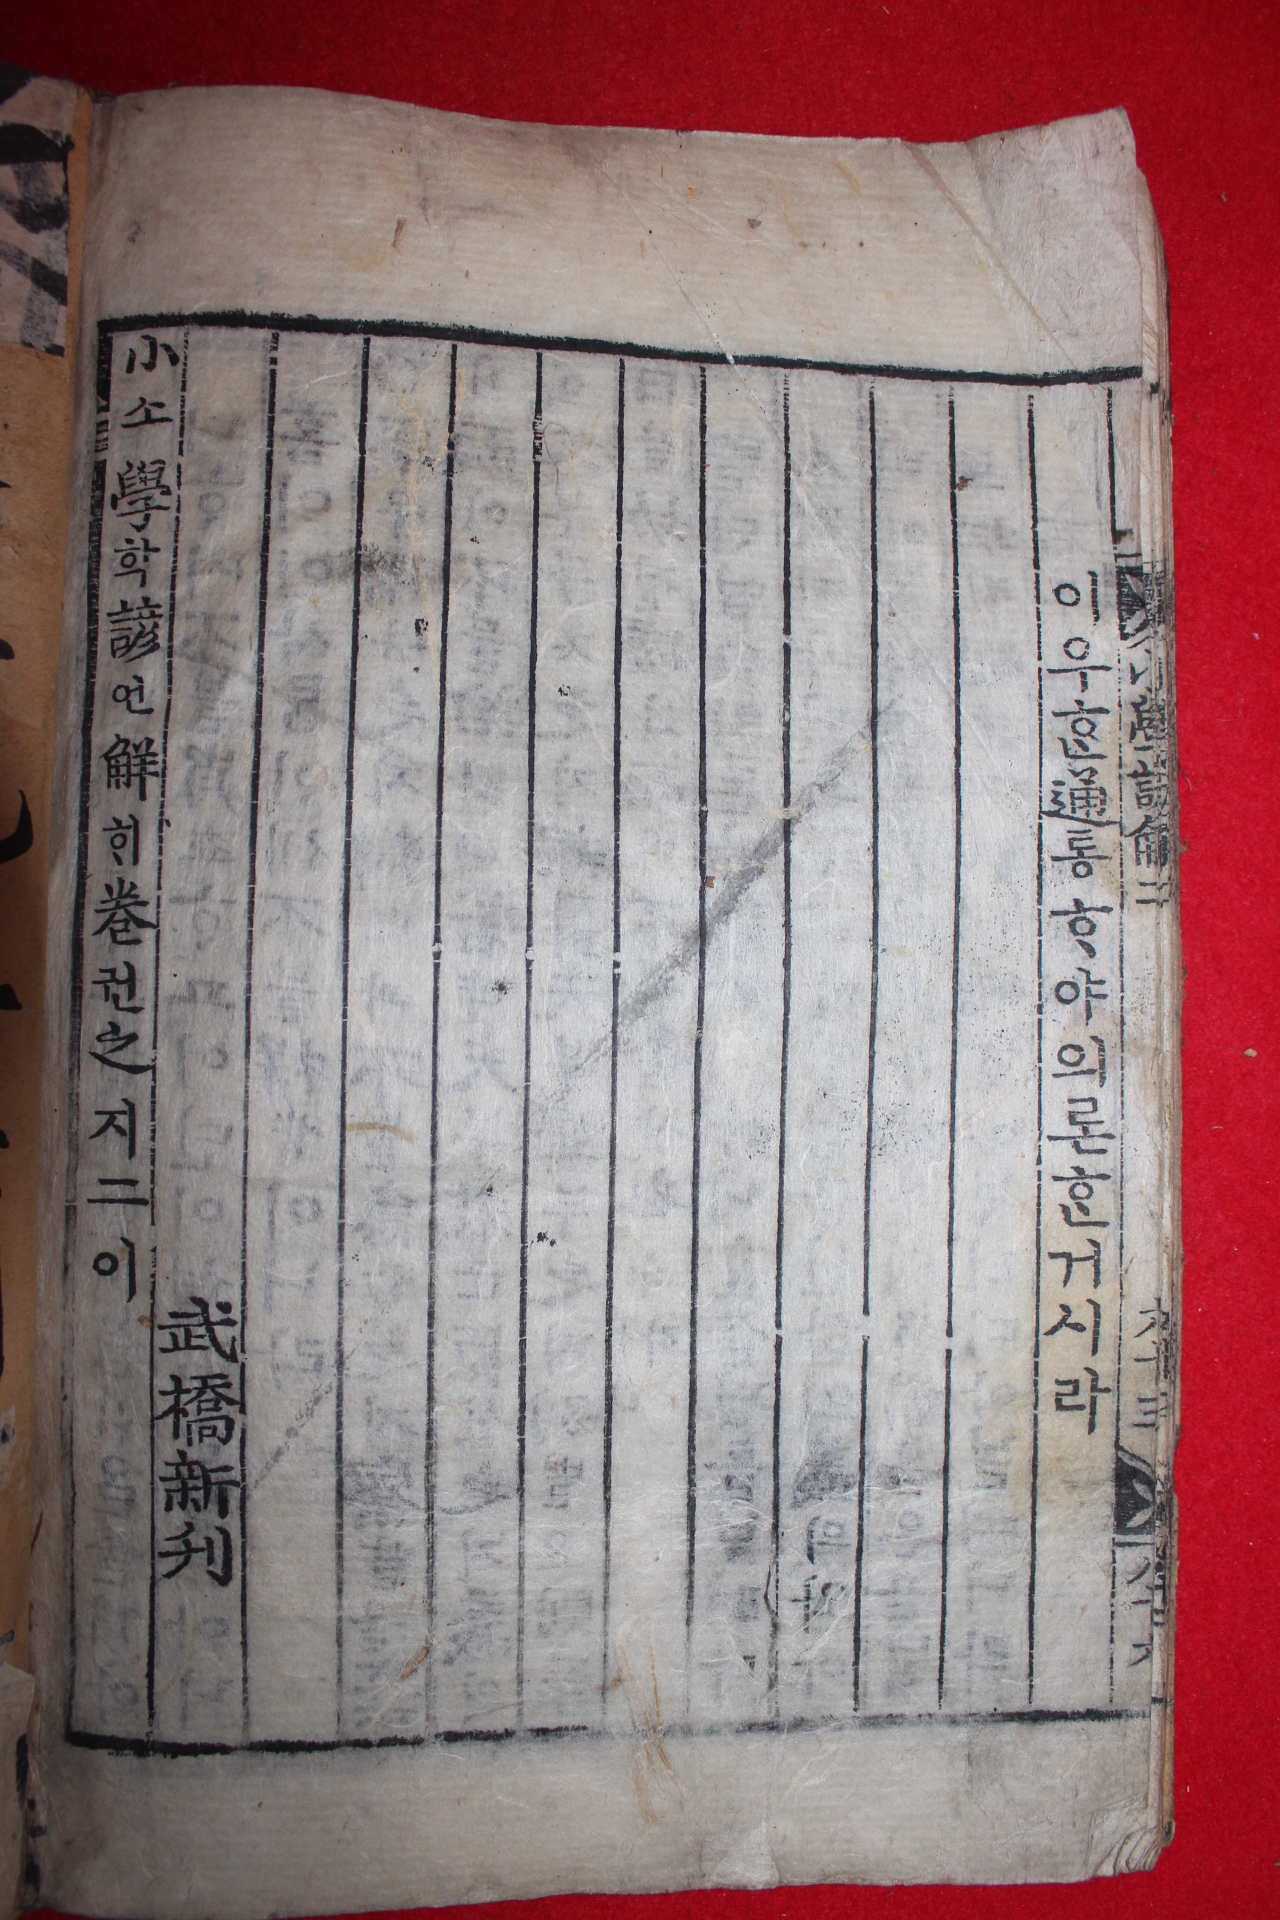 小學諺解二
이우ᄒᆞᆫ通통ᄒᆞ야의론ᄒᆞᆫ거시라
武橋新刊
小소學학諺언解ᄒᆡ卷권之지二이